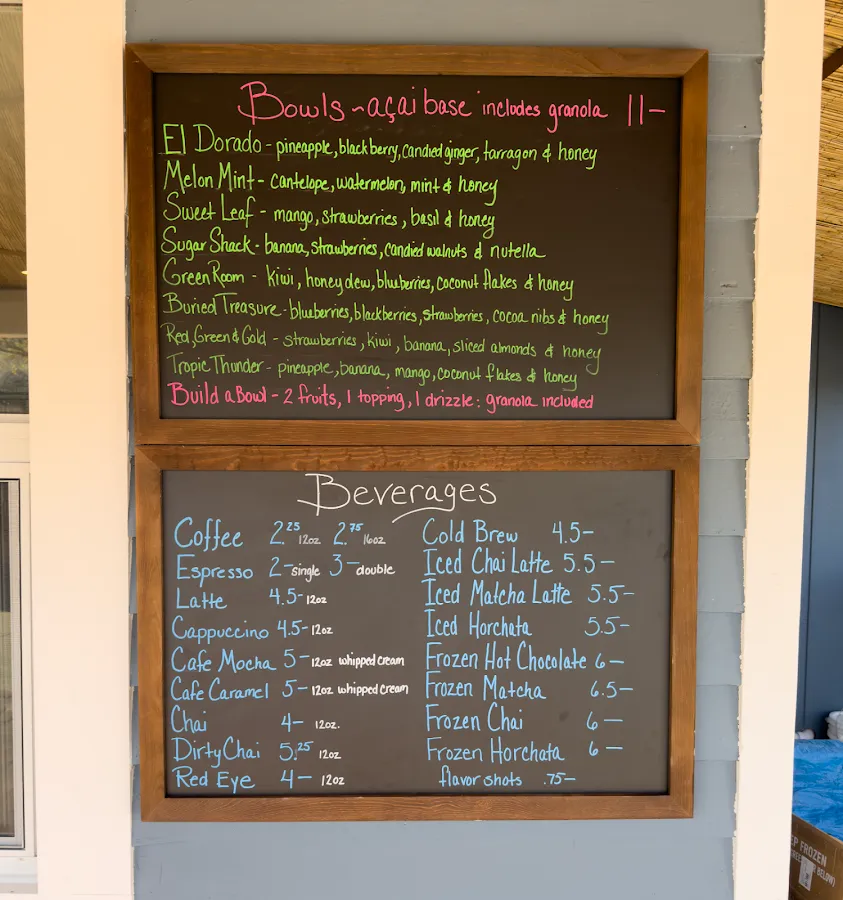 Bowls ~ açai base includes granola 11-
El Dorado - pineapple, blackberry, candied ginger, tarragon & honey
Melon Mint - cantelope, watermelon, mint & honey
Sweet Leaf - mango, strawberries, basil & honey
Sugar Shack - banana, strawberries, candied walnuts & nutella
Green Room - kiwi, honeydew, blueberries, coconut flakes & honey
Buried Treasure - blueberries, blackberries, strawberries, cocoa nibs & honey
Red, Green & Gold - strawberries, kiwi, banana, sliced almonds & honey
Tropic Thunder - pineapple, banana, mango, coconut flakes & honey
Build a Bowl - 2 fruits, 1 topping, 1 drizzle: granola included
Beverages
Coffee 2.25 12oz 2.75 16oz
Espresso 2- single 3- double
Latte 4.5- 12oz
Cappuccino 4.5- 12oz
Cafe Mocha 5- 12oz whipped cream
Cafe Caramel 5- 12oz whipped cream
Chai 4- 12oz.
Dirty Chai 5.25 12oz
Red Eye 4- 12oz
Cold Brew 4.5-
Iced Chai Latte 5.5-
Iced Matcha Latte 5.5-
Iced Horchata 5.5-
Frozen Hot Chocolate 6-
Frozen Matcha 6.5-
Frozen Chai 6-
Frozen Horchata 6-
flavor shots .75-
FROZEN
BELOW)